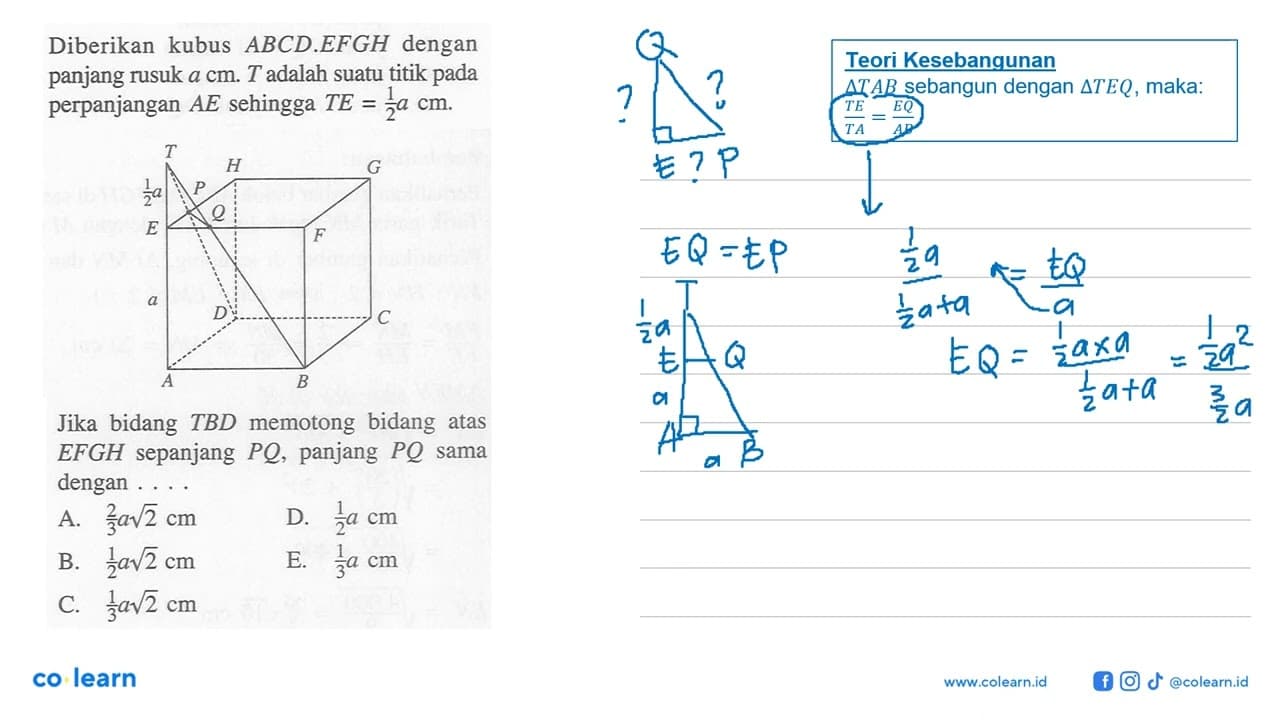 Diberikan kubus ABCD.EFGH dengan
panjang rusuk a cm. T adalah suatu titik pada
perpanjangan AE sehingga TE = 1/2 a cm.
T
H
G
1/2 a
P
Q
E
F
a
D
C
A
B
Jika bidang TBD memotong bidang atas
EFGH sepanjang PQ, panjang PQ sama
dengan . . . .
A. 2/3 a√2 cm
D. 1/2 a cm
B. 1/2 a√2 cm
E. 1/3 a cm
C. 1/3 a√2 cm
Q
?
?
E ? P
EQ = EP
T
1/2 a
E
Q
a
A
a
B
Teori Kesebangunan
ΔTAB sebangun dengan ΔTEQ, maka:
TE/TA = EQ/AB
1/2 a / 1/2 a + a = EQ / a
EQ = 1/2 a × a / 1/2 a + a = 1/2 a² / 3/2 a
co learn
www.colearn.id
@colearn.id